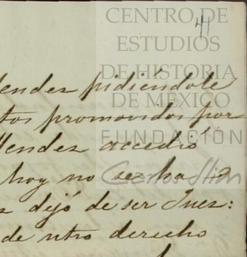 41
CENTRO DE
ESTUDIOS
DE HISTORIA
DE MÉXICO
FUNDACIÓN
Carlos Slim
endez pidiéndole
tos promovidos por
Mendez accedió
hoy no se ha
dejó de ser Juez:
de ntro derecho